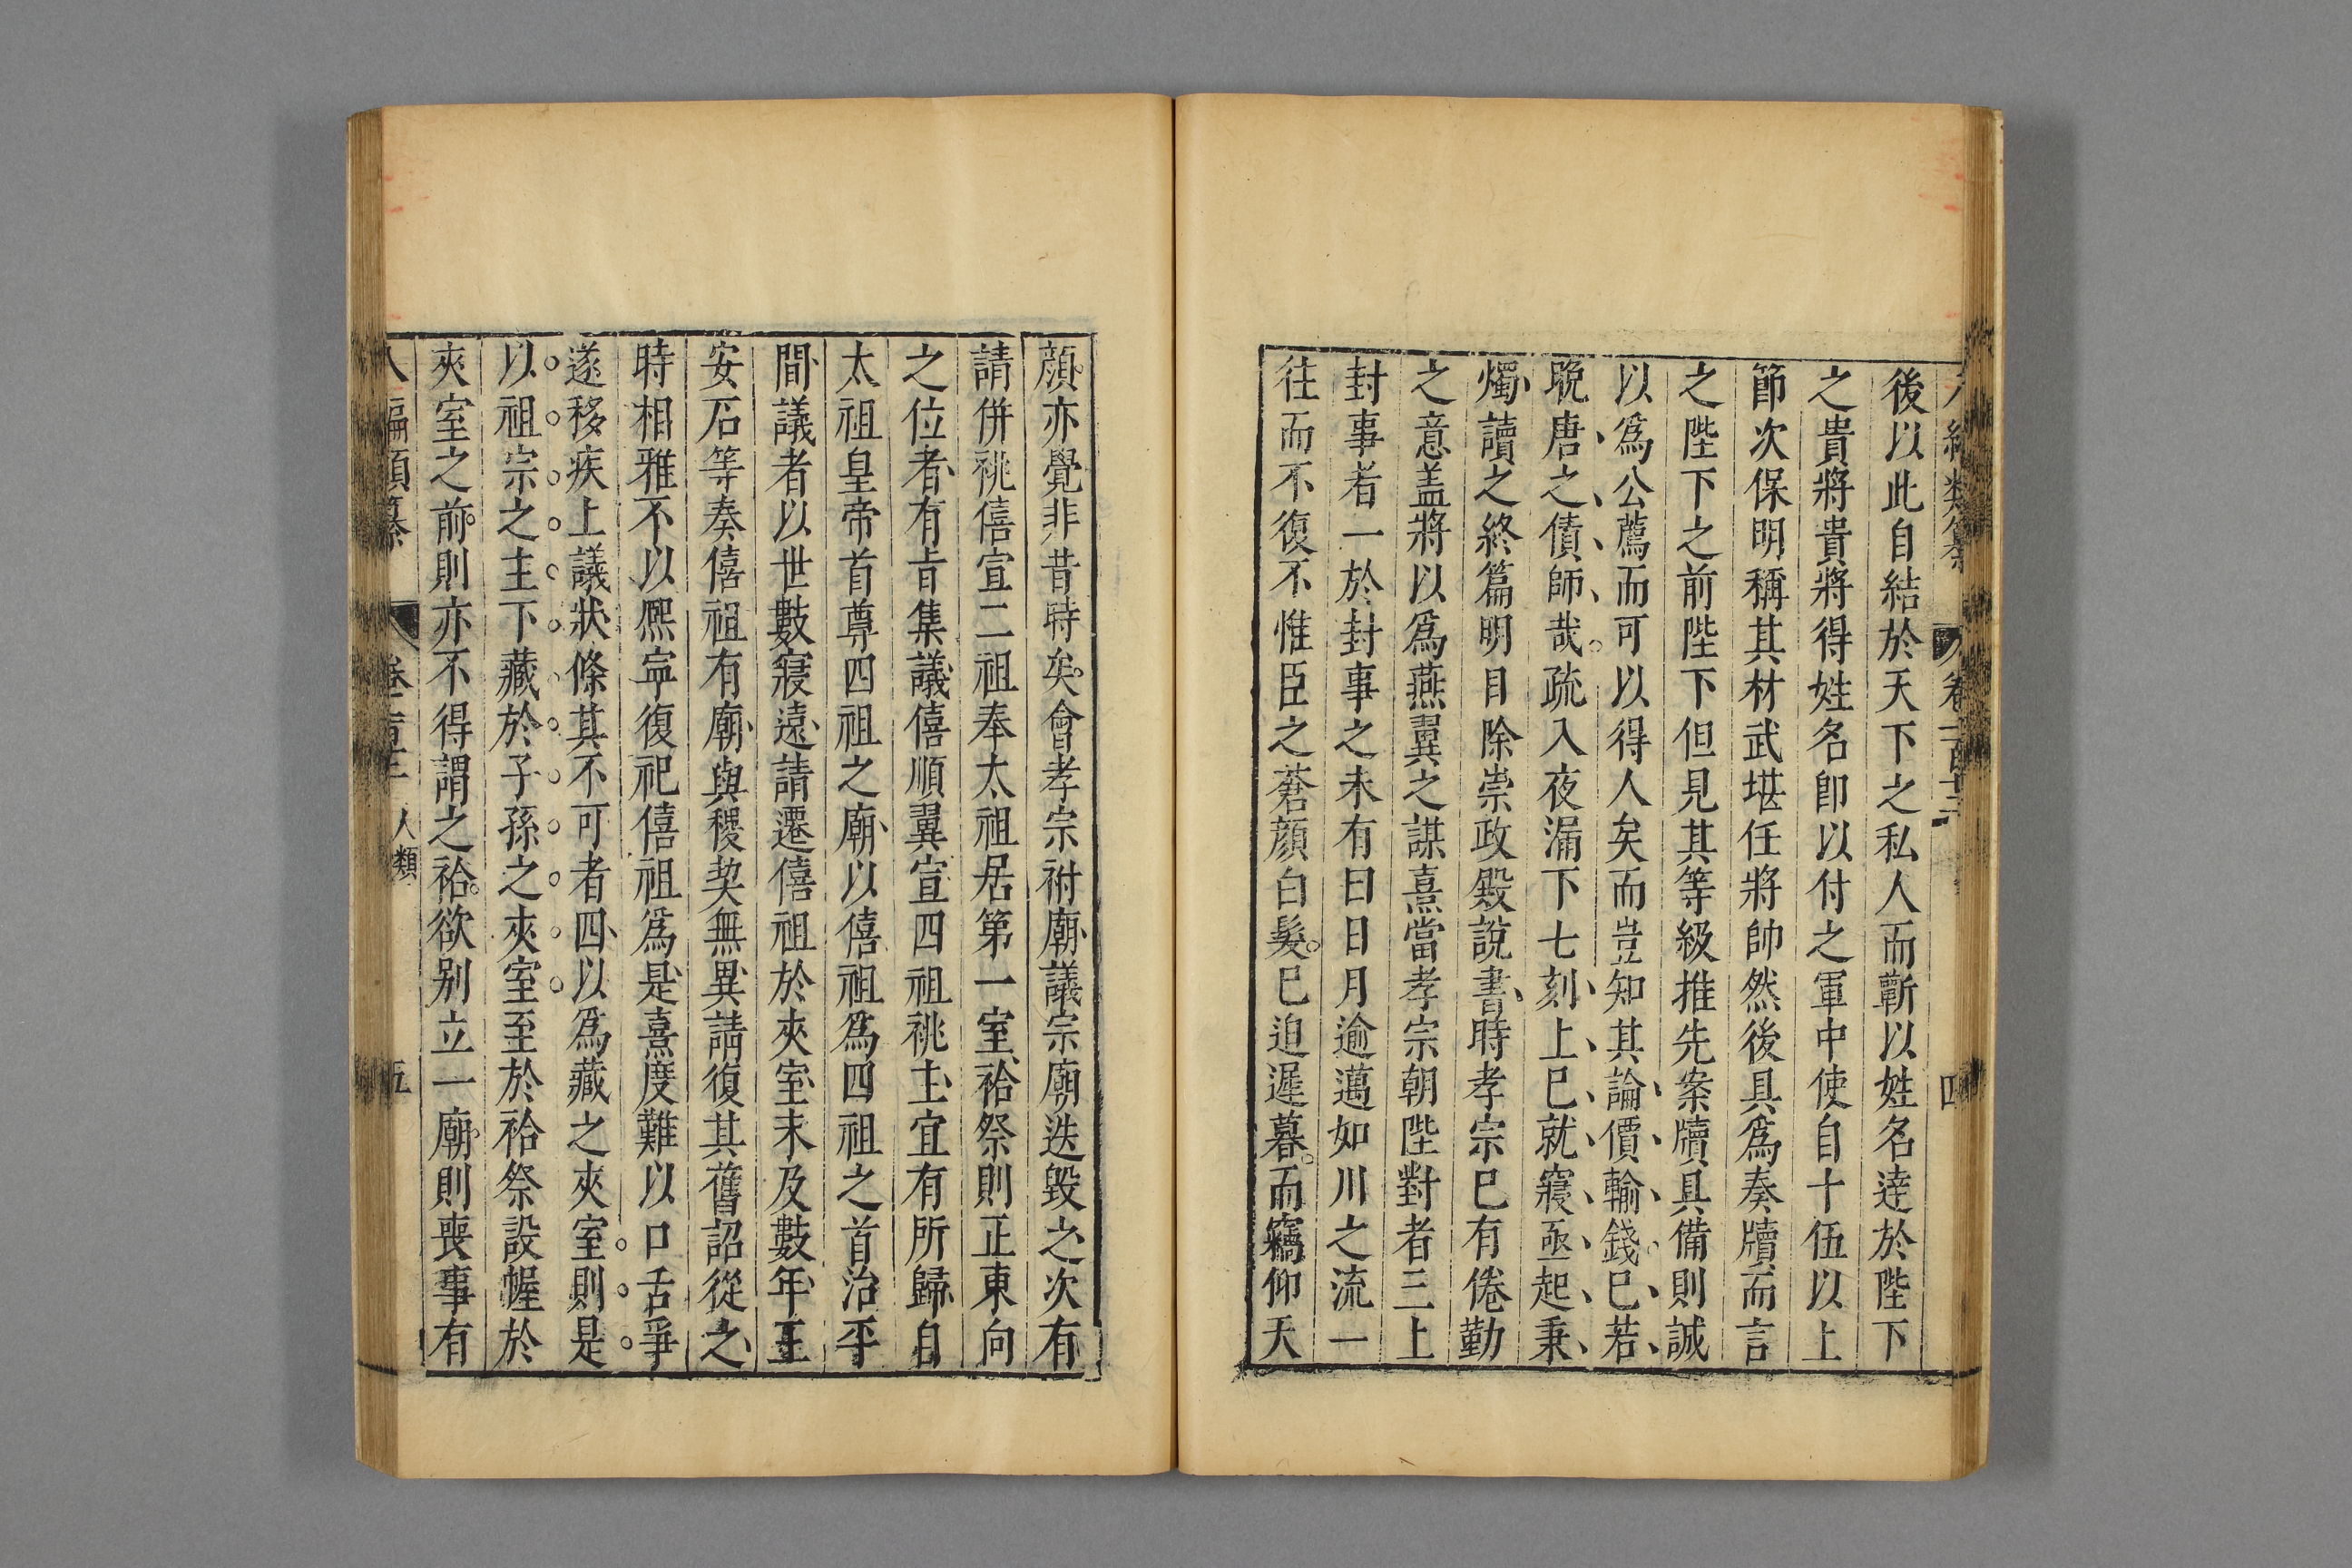 後以此自結於天下之私人而蘄以姓名達於陛下
之貴將貴將得姓名卽以付之軍中使自十伍以上
節次保明稱其材武堪任將帥然後具爲奏牘而言
之陛下之前陛下但見其等級推先案牘具備則誠
以爲公薦而可以得人矣而豈知其論價輸錢已若
晚唐之債師哉疏入夜漏下七刻上已就寢亟起秉
燭讀之終篇明日除崇政殿說書時孝宗已有倦勤
之意盖將以爲燕翼之謀熹當孝宗朝陛對者三上
封事者一於封事之末有曰日月逾邁如川之流一
往而不復不惟臣之蒼顏白髮已迫遲暮而竊仰天
顏亦覺非昔時矣會孝宗祔廟議宗廟迭毀之次有
請併祧僖宣二祖奉太祖居第一室祫祭則正東向
之位者有旨集議僖順翼宣四祖祧主宜有所歸自
太祖皇帝首尊四祖之廟以僖祖爲四祖之首治平
間議者以世數寖遠請遷僖祖於夾室未及數年王
安石等奏僖祖有廟與稷契無異請復其舊詔從之
時相雅不以熈寧復祀僖祖爲是熹度難以口舌爭
遂移疾上議狀條其不可者四以爲藏之夾室則是
以祖宗之主下藏於子孫之夾室至於祫祭設幄於
夾室之前則亦不得謂之祫欲别立一廟則喪事有
人類
五